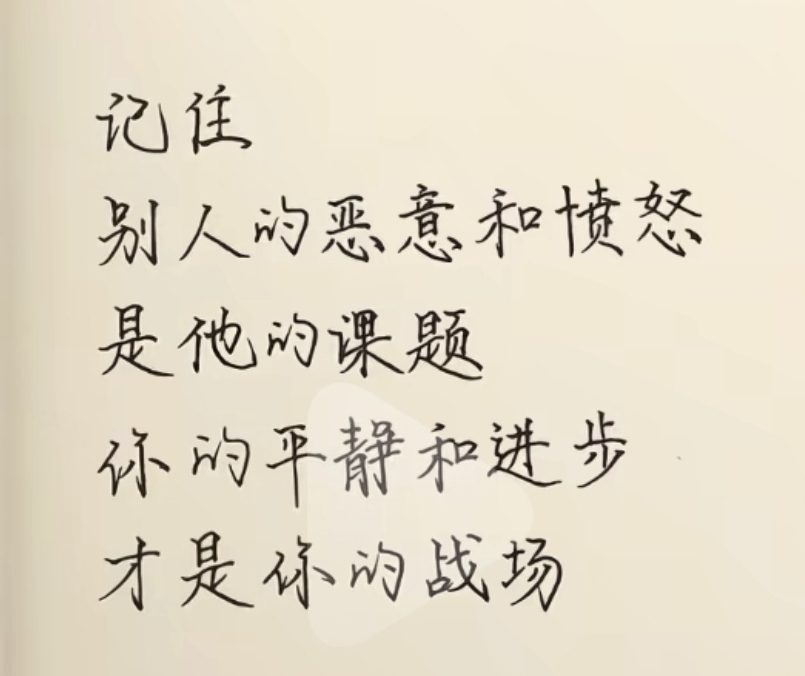 记住
别人的恶意和愤怒
是他的课题
你的平静和进步
才是你的战场